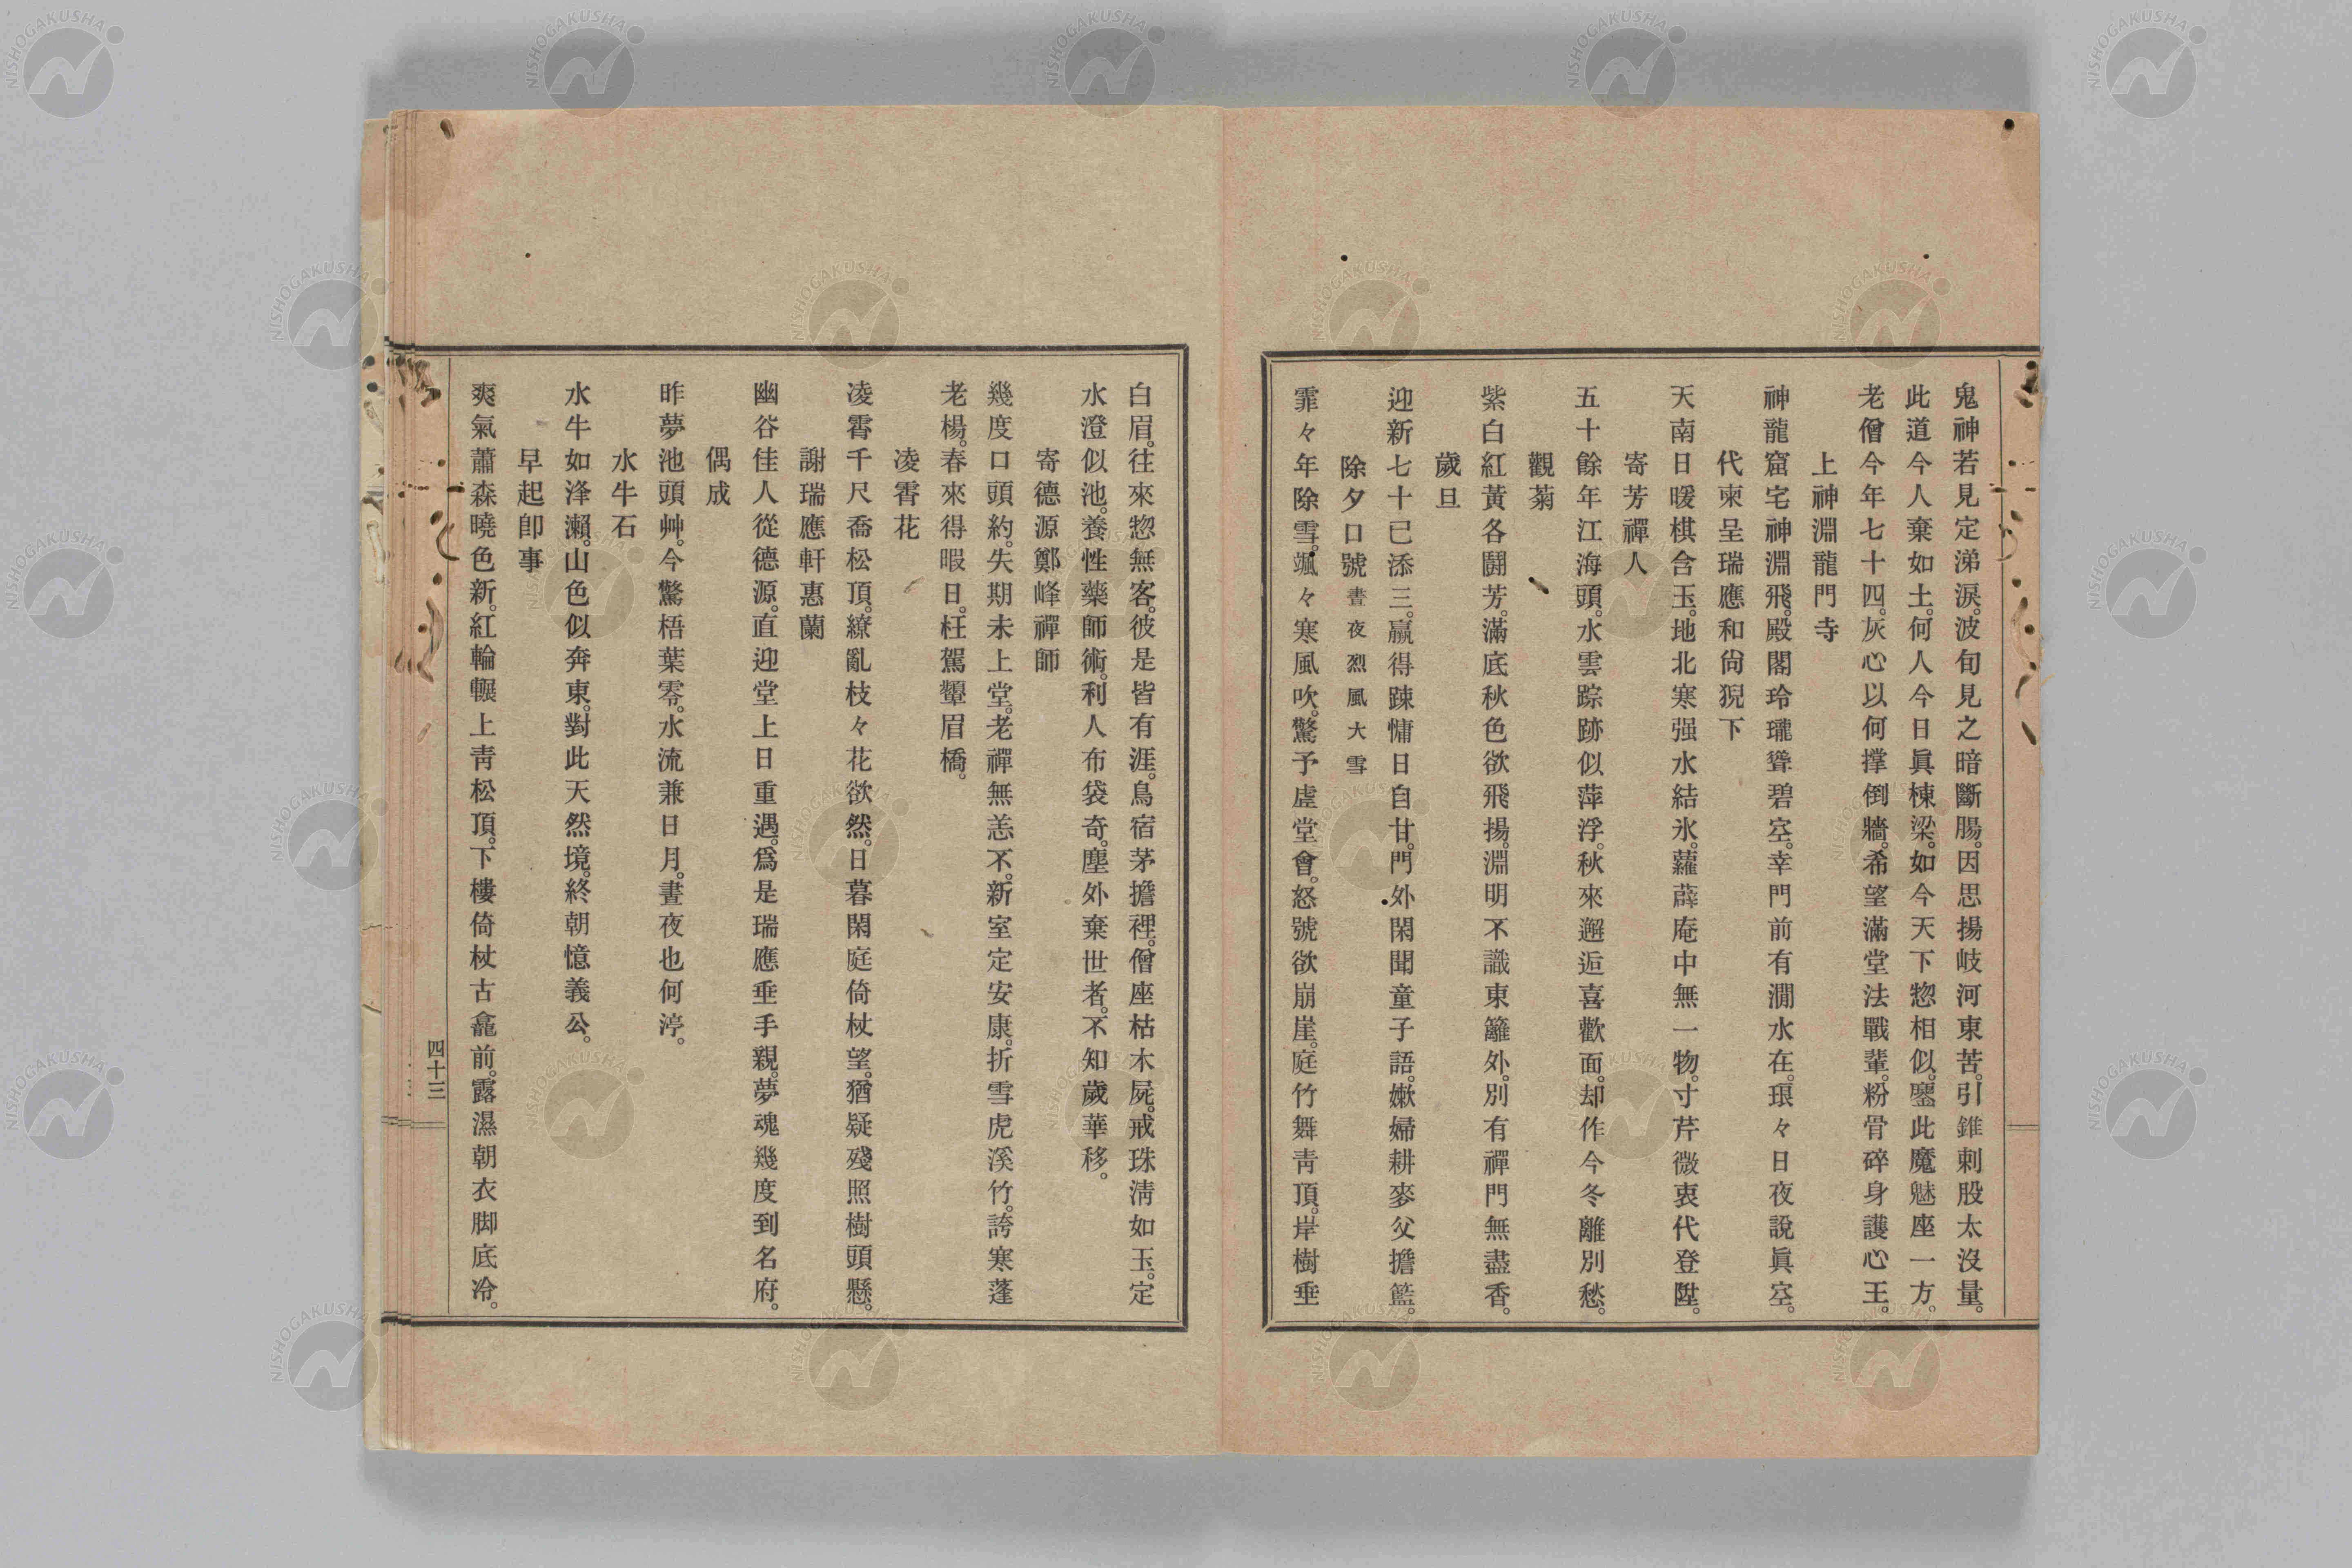 鬼神若見定涕淚。波旬見之暗斷腸。因思揚岐河東苦。引錐刺股太沒量。
此道今人棄如土。何人今日眞棟梁。如今天下惣相似。鑒此魔魅座一方。
老僧今年七十四。灰心以何撑倒牆。希望滿堂法戰輩。粉骨碎身護心王。
上神淵龍門寺
神龍窟宅神淵飛。殿閣玲瓏聳碧空。幸門前有澗水在。琅々日夜說眞空。
代柬呈瑞應和尙猊下
天南日暖棋含玉。地北寒强水結氷。蘿薜庵中無一物。寸芹微衷代登陞。
寄芳禪人
五十餘年江海頭。水雲踪跡似萍浮。秋來邂逅喜歡面。却作今冬離別愁。
觀菊
紫白紅黃各鬪芳。滿底秋色欲飛揚。淵明不識東籬外。別有禪門無盡香。
歲旦
迎新七十已添三。贏得踈慵日自甘。門外閑聞童子語。嫰婦耕麥父擔籃。
除夕口號 晝夜烈風大雪
霏々年除雪。颯々寒風吹。驚予虛堂會。怒號欲崩崖。庭竹舞靑頂。岸樹垂
白眉。往來惣無客。彼是皆有涯。鳥宿茅擔裡。僧座枯木屍。戒珠淸如玉。定
水澄似池。養性藥師術。利人布袋奇。塵外棄世者。不知歲華移。
寄德源鄭峰禪師
幾度口頭約。失期未上堂。老禪無恙不。新室定安康。折雪虎溪竹。誇寒蓬
老楊。春來得暇日。枉駕顰眉橋。
凌霄花
凌霄千尺喬松頂。繚亂枝々花欲然。日暮閑庭倚杖望。猶疑殘照樹頭懸。
謝瑞應軒惠蘭
幽谷佳人從德源。直迎堂上日重遇。爲是瑞應垂手親。夢魂幾度到名府。
偶成
昨夢池頭艸。今驚梧葉零。水流兼日月。晝夜也何渟。
水牛石
水牛如浲瀨。山色似奔東。對此天然境。終朝憶義公。
早起卽事
爽氣蕭森曉色新。紅輪輾上靑松頂。下樓倚杖古龕前。露濕朝衣脚底冷。
四十三
NISHOGAKUSHA